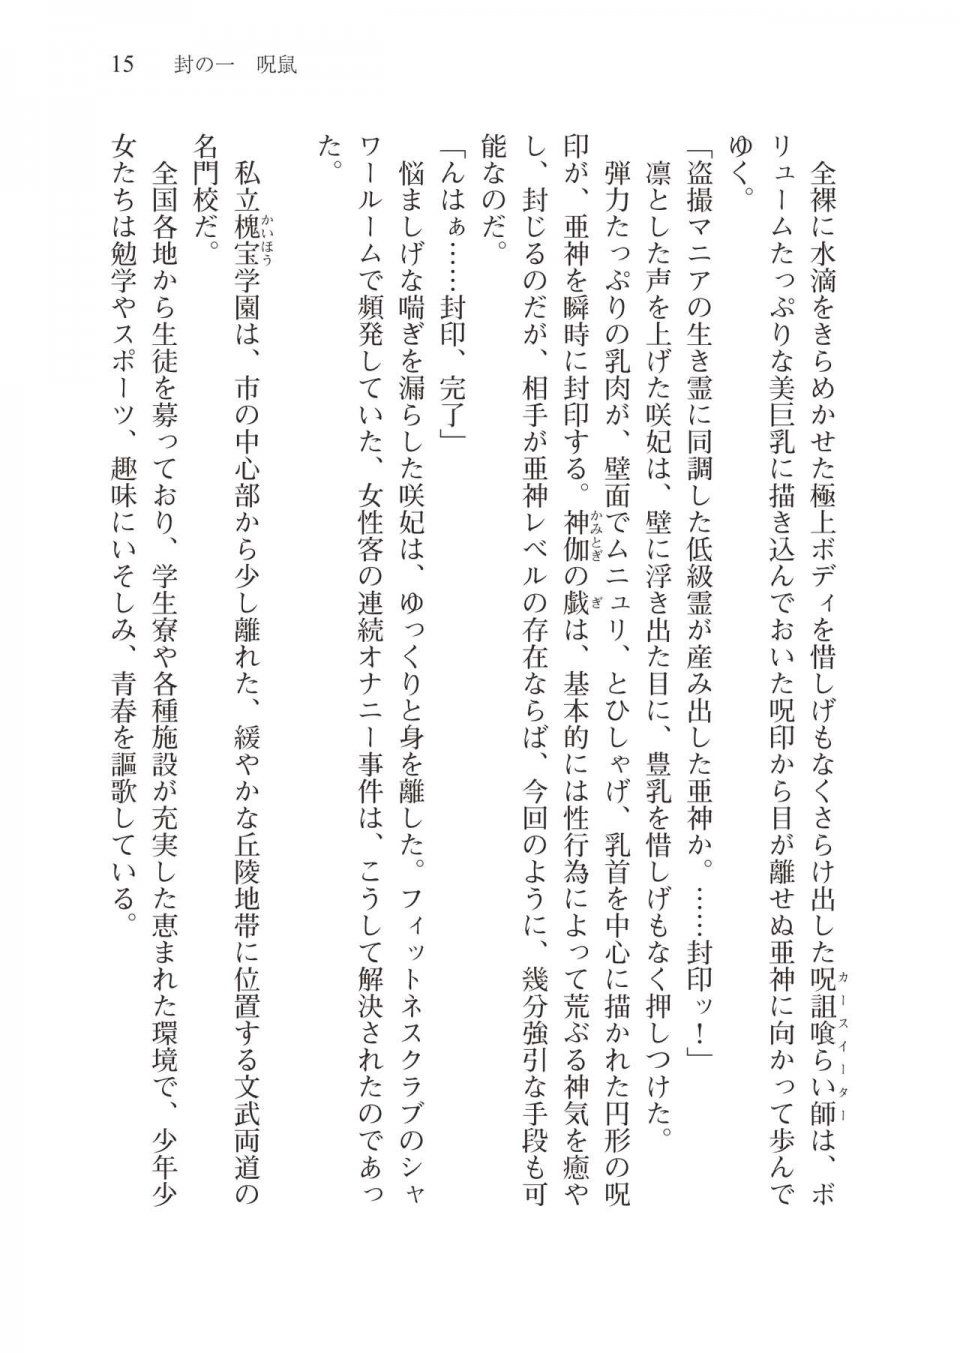 15 封の一 呪鼠
全裸に水滴をきらめかせた極上ボディを惜しげもなくさらけ出した呪詛喰らい師は、ボ
カースイーター
リュームたっぷりな美巨乳に描き込んでおいた呪印から目が離せぬ亜神に向かって歩んで
ゆく。
「盗撮マニアの生き霊に同調した低級霊が産み出した亜神か。……封印ッ！」
凛とした声を上げた咲妃は、壁に浮き出た目に、豊乳を惜しげもなく押しつけた。
弾力たっぷりの乳肉が、壁面でムニュリ、とひしゃげ、乳首を中心に描かれた円形の呪
印が、亜神を瞬時に封印する。神伽の戯は、基本的には性行為によって荒ぶる神気を癒や
かみとぎ ぎ
し、封じるのだが、相手が亜神レベルの存在ならば、今回のように、幾分強引な手段も可
能なのだ。
「んはぁ……封印、完了」
悩ましげな喘ぎを漏らした咲妃は、ゆっくりと身を離した。フィットネスクラブのシャ
ワールームで頻発していた、女性客の連続オナニー事件は、こうして解決されたのであっ
た。
私立槐宝学園は、市の中心部から少し離れた、緩やかな丘陵地帯に位置する文武両道の
かいほう
名門校だ。
全国各地から生徒を募っており、学生寮や各種施設が充実した恵まれた環境で、少年少
女たちは勉学やスポーツ、趣味にいそしみ、青春を謳歌している。